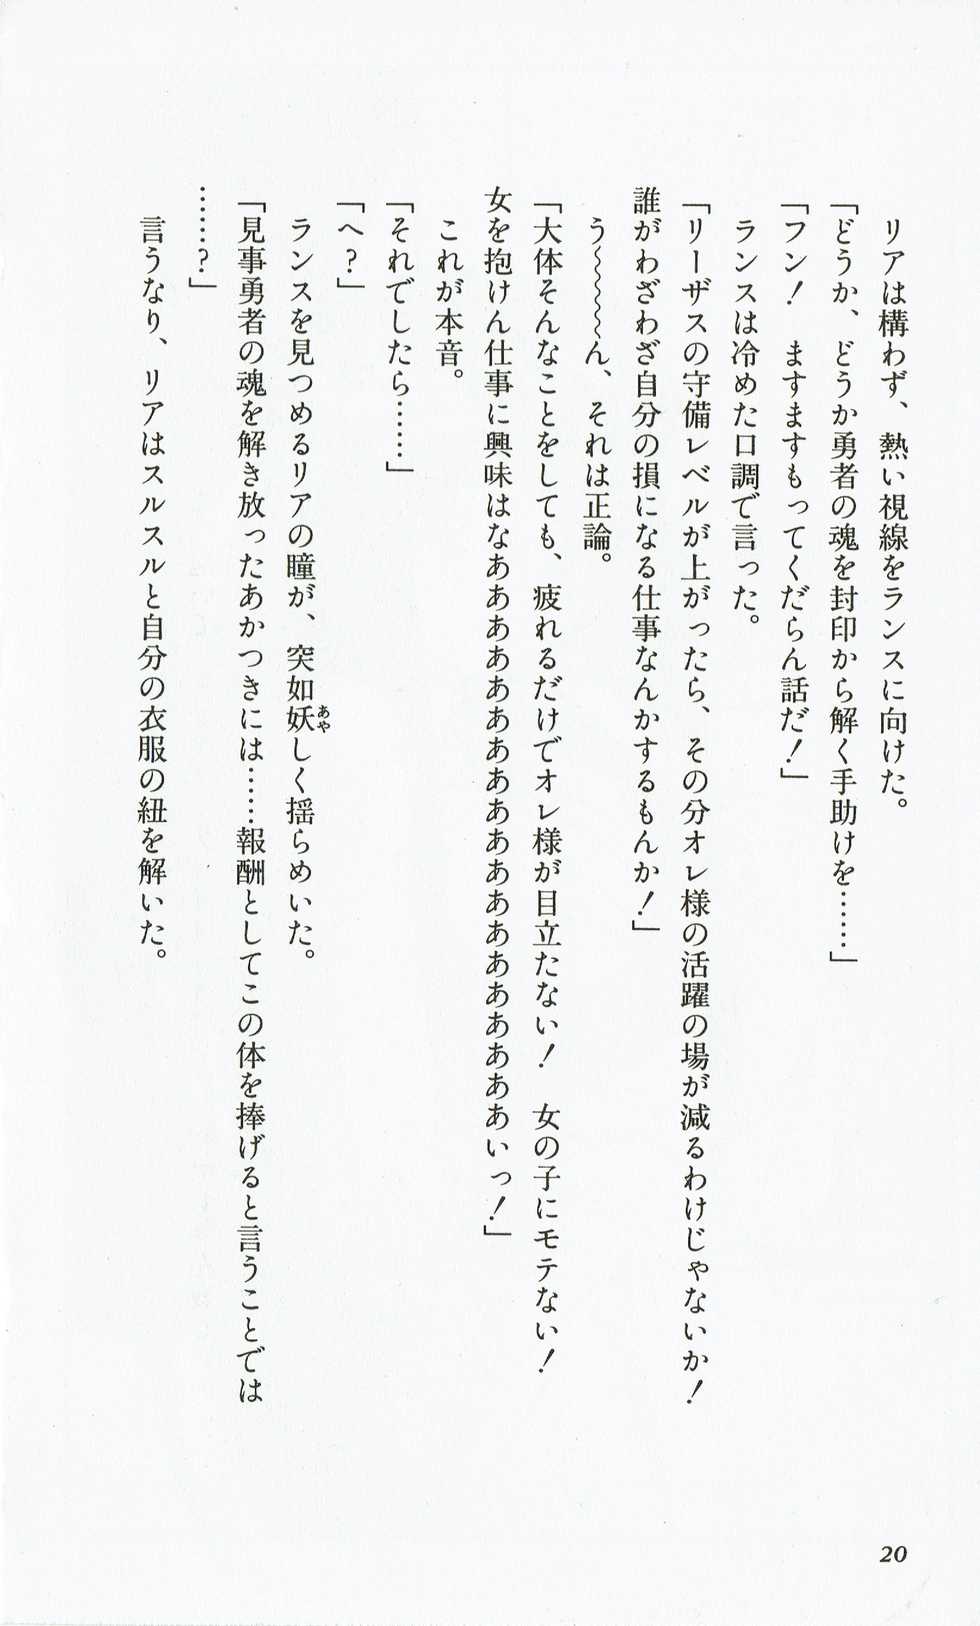 リアは構わず、熱い視線をランスに向けた。
「どうか、どうか勇者の魂を封印から解く手助けを……」
「フン！　ますますもってくだらん話だ！」
ランスは冷めた口調で言った。
「リーザスの守備レベルが上がったら、その分オレ様の活躍の場が減るわけじゃないか！
誰がわざわざ自分の損になる仕事なんかするもんか！」
う～～～～ん、それは正論。
「大体そんなことをしても、疲れるだけでオレ様が目立たない！　女の子にモテない！
女を抱けん仕事に興味はなあああああああああああああああああああいっ！」
これが本音。
「それでしたら……」
「へ？」
ランスを見つめるリアの瞳が、突如妖しく揺らめいた。
あや
「見事勇者の魂を解き放ったあかつきには……報酬としてこの体を捧げると言うことでは
……？」
言うなり、リアはスルスルと自分の衣服の紐を解いた。
20